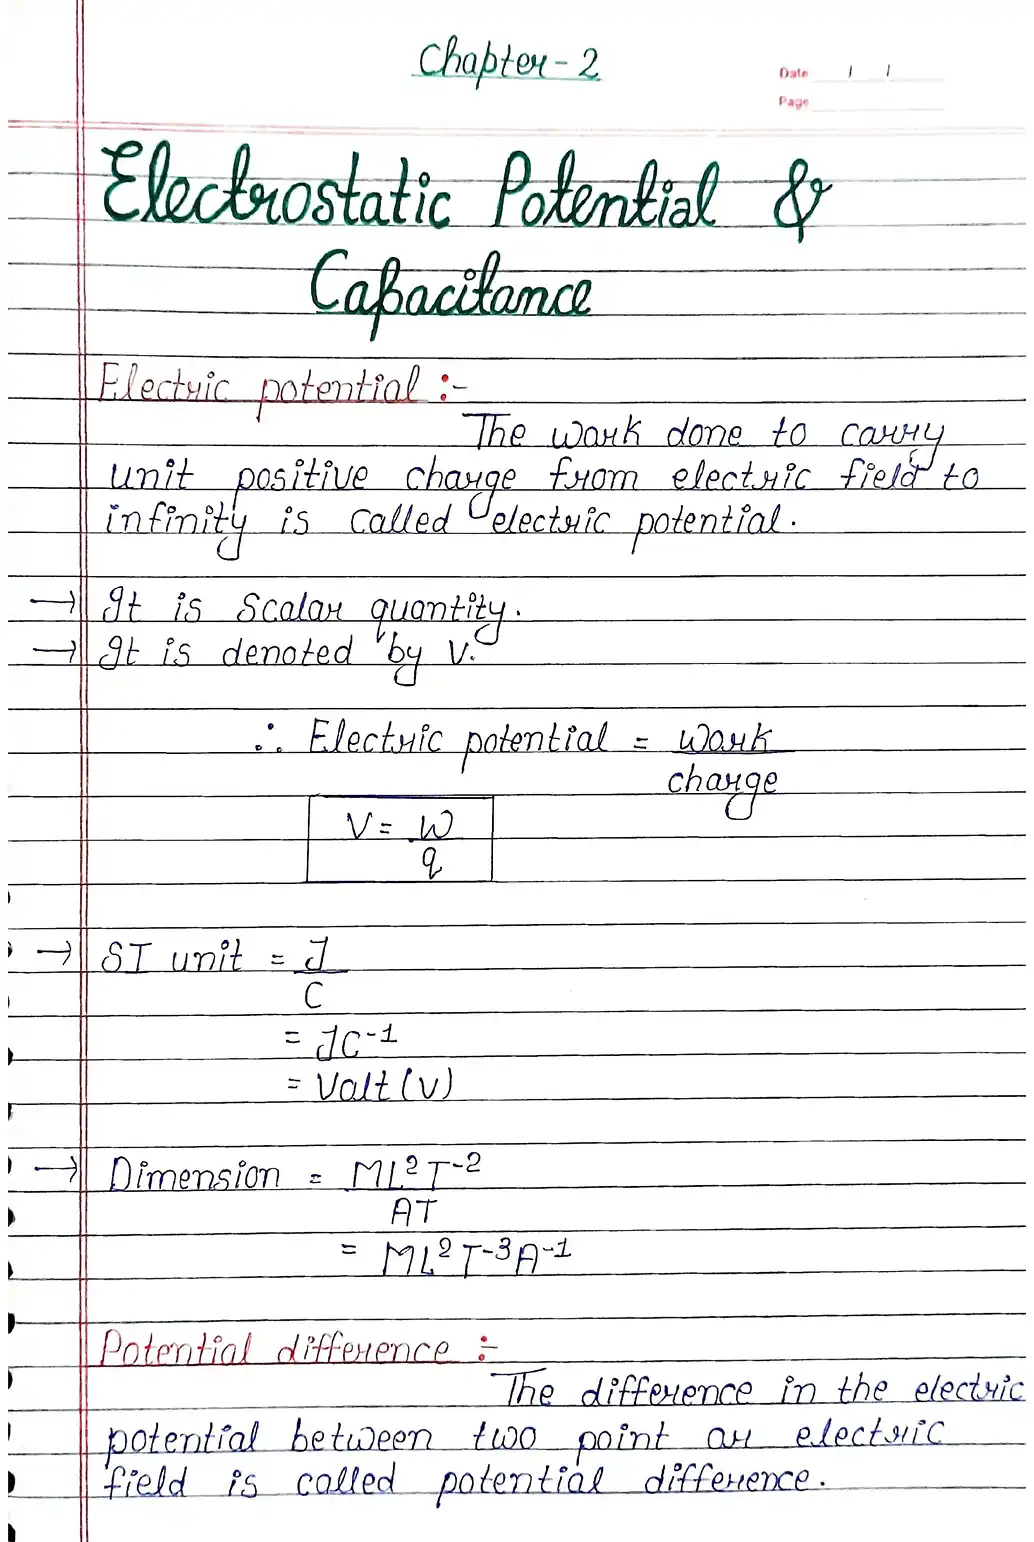 Chapter-2
Date / /
Page
Electrostatic Potential &
Capacitance
Electric potential :-
The work done to carry
unit positive charge from electric field to
infinity is called electric potential.
→ It is Scalar quantity.
→ It is denoted by V.
∴ Electric potential = work
charge
V = W
q
→ SI unit = J
C
= JC⁻¹
= Volt (V)
→ Dimension = ML²T⁻²
AT
= ML²T⁻³A⁻¹
Potential difference :-
The difference in the electric
potential between two point or electric
field is called potential difference.